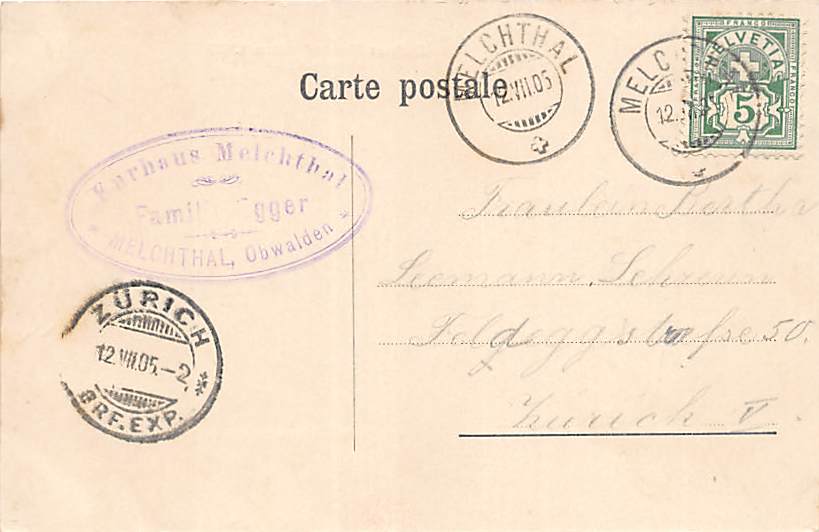 Carte postale
MELCHTHAL
12.VII.05
MELC
12.
FRANCO
HELVETIA
FRANCO
FRANCO
5
Kurhaus Melchthal
Famil gger
MELCHTHAL, Obwalden
ZÜRICH
12.VII.05.-2
BRF.EXP.
Fräulein Bertha
Leemann, Lehrerin
Feldeggstraße 50.
Zürich V